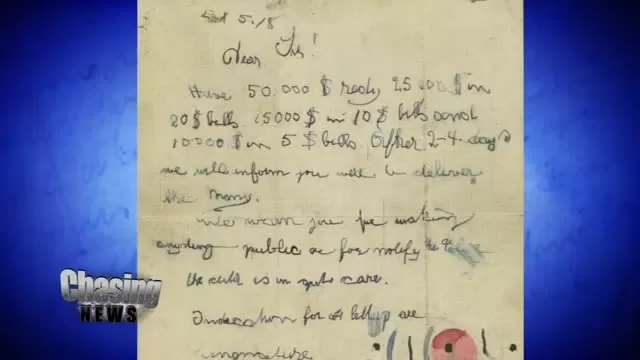 Dear Sir!
Have 50.000 $ redy 25 000 $ in
20 $ bills 15000 $ in 10 $ bills and
10000 $ in 5 $ bills After 2-4 days
we will inform you were to deliver
the Mony.
We warn you for making
anyding public or for notify the
the child is in gute care.
Indication for all letters are
singnature
Chasing
NEWS